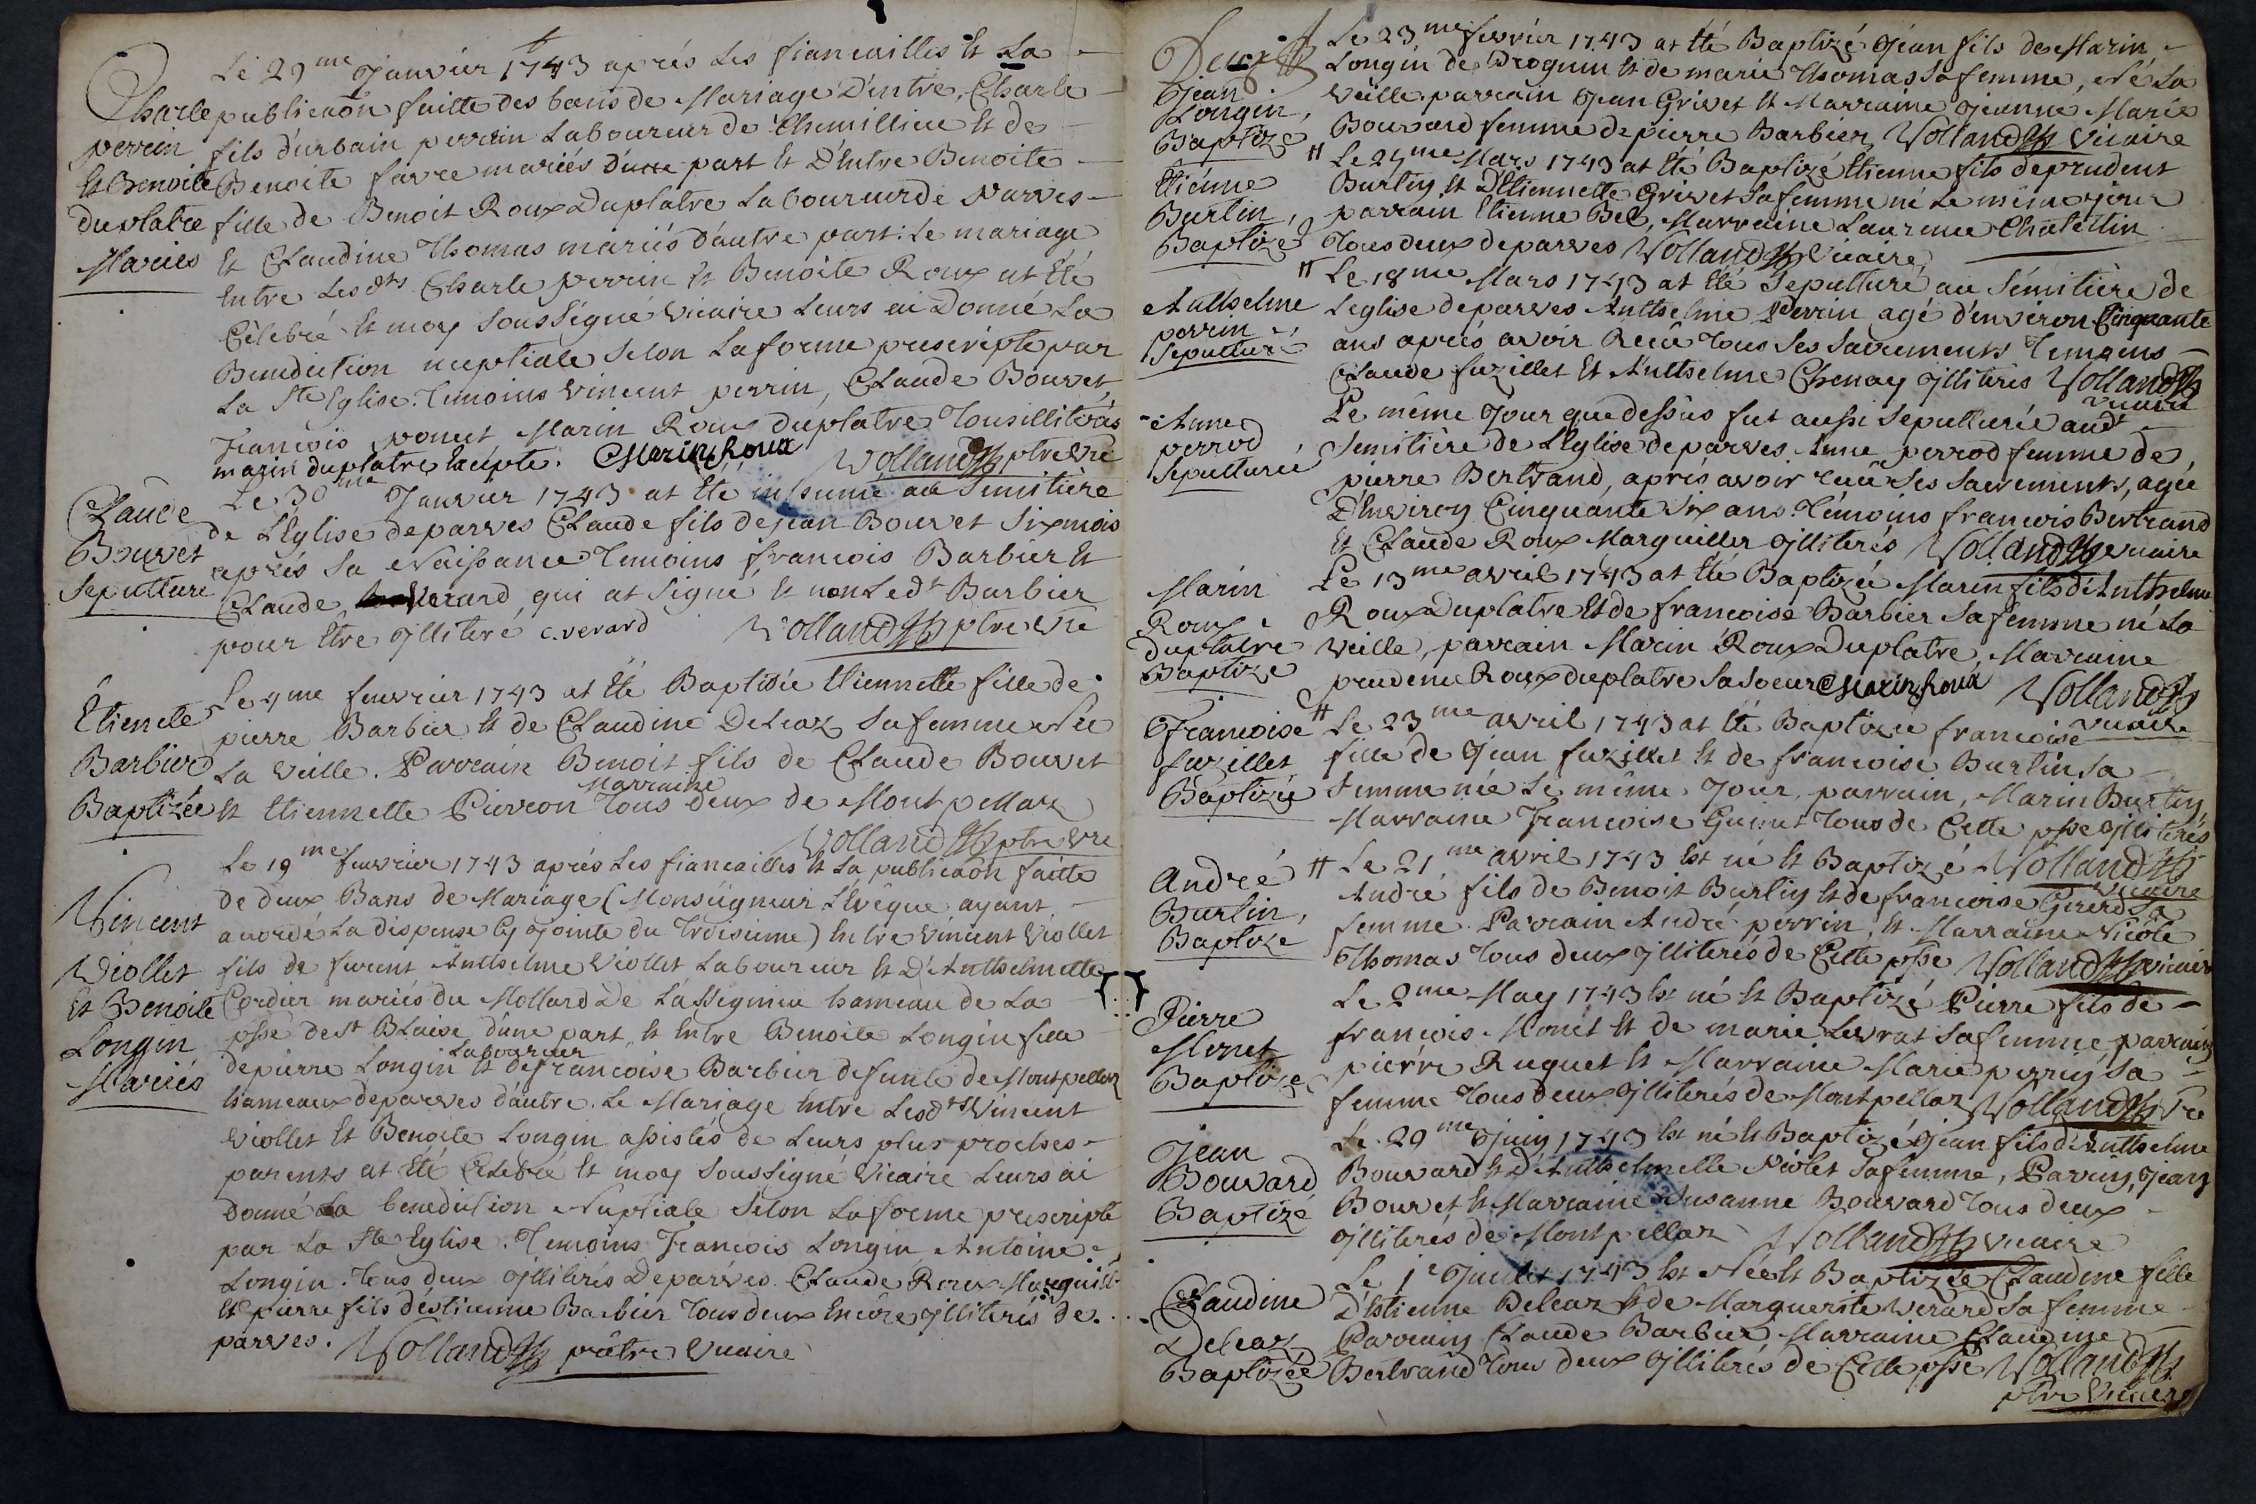 Charle
perrin
Et Benoite
duplatre
Mariés
Le 29me Janvier 1743 aprés Les fiancailles Et La
publicaõn faitte des bans de Mariage D'entre, Charle
fils d'urbain perrin Laboureur de Chemillieu Et de
Benoite favre mariés d'une part Et D'Entre Benoite
fille de Benoit Roux Duplatre Laboureur de parves
Et Claudine Thomas mariés d'autre part: Le mariage
Entre Lesdts Charle perrin Et Benoite Roux at Eté
Célebré Et moy Soussigné vicaire Leurs ai Donné La
Benediction nuptiale Selon La forme prescripte par
La Ste Eglise. Temoins vincent perrin, Claude Bouvet,
francois ponect Marin Roux duplatre Tous illiterés
marin duplatre Excepte. Marin Roux Volland ptre Vre
Claude
Bouvet
Sepulturé
Le 30me Janvier 1743 at Eté inhumé au Semitière
de L'Eglise de parves Claude fils de jean Bouvet Six mois
aprés Sa Naissance Temoins francois Barbier Et
Claude Verard, qui at Signé Et non Ledt Barbier
pour Etre jlliteré c. verard Volland ptre Vre
Etienete
Barbier
Baptizée
Le 4me fevvrier 1743 at Eté Baptisée Etiennette fille de
pierre Barbier Et de Claudine Deleaz Sa femme Née
La veille. Parrain Benoit fils de Claude Bouvet
Marraine
Et Etiennette Pierron Tous deux de Montpellaz
Volland ptre vre
Vincent
Viollet
Et Benoite
Longin
Mariés
Le 19me fevvrier 1743 aprés Les fiancailles Et La publicaõn faitte
de deux Bans de Mariage (Monseigneur L'Evêque ayant
accordé La dispense Cy jointe du Troisieme) Entre vincent Viollet
fils de furent Anthelme Viollet Laboureur Et D'Anthelmette
Cordier mariés du Mollard De Lassegnieu hameau de La
psse de St Blaise d'une part, Et Entre Benoite Longin fille
Laboureur
de pierre Longin Et de francoise Barbier defunte de Montpellaz
hameaux de parves d'autre. Le Mariage Entre Lesdts Vincent
Viollet Et Benoite Longin assistés de Leurs plus proches
parents at Eté Celebré Et moy Soussigné Vicaire Leurs ai
donné La benediction Nuptiale Selon La forme prescripte
par La Ste Eglise. Temoins Francois Longin Antoine
Longin. Tous deux jllitérés De parves. Claude Roux Marguill
Et pierre fils d'éstienne Barbier Tous deux Encore jlliterés de
parves. Volland prêtre Vicaire
Jean
Longin,
Baptizé
Le 23me fevvrier 1743 at Eté Baptizé Jean fils de Marin
Longin de Brognin Et de marie Thomas Sa femme, Né La
veille. parrain Jean Grivet Et Marraine Jeanne Marie
Bouvard femme de pierre Barbier, Volland Vicaire
Etienne
Burtin,
Baptizé
Le 24me Mars 1743 at Eté Baptizé Etienne fils de prudent
Burtin Et D'Etiennette Grivet Sa femme né Le même jour
parrain Etienne Bel, Marraine Laurence Chatellin
Tous deux de parves Volland Vicaire
Anthelme
perrin
Sepulturé
Le 18me Mars 1743 at Eté Sepulturé au Sémitière de
L'eglise de parves Anthelme Perrin agé d'environ Cinquante
ans aprés avoir Recû Tous Ses Sacrements Temoins
Claude fuzillet Et Anthelme Chenay jlliterés Volland
Vicaire
Anne
perrod
Sepulturée
Le même Jour que dessus fut aussi Sepulturée audt
Semitière de L'Eglise de parves Anne perrod femme de
pierre Bertrand, aprés avoir recû Ses Sacrements, agée
D'Environ Cinquante Six ans. Témoins francois Bertrand
Et Claude Roux Marguiller jlliterés Volland vicaire
Marin
Roux
duplatre
Baptizé
Le 13me avril 1743 at Eté Baptizée Marin fils d'Anthelme
Roux Duplatre Et de francoise Barbier Sa femme né La
veille, parrain Marin Roux Duplatre, Marraine
prudence Roux duplatre Sa Soeur Marin Roux Volland
vicaire
Francoise
fuzillet
Baptizée
Le 23me avril 1743 at Eté Baptizée francoise
fille de Jean fuzillet Et de francoise Burtin Sa
femme née Le même Jour, parrain, Marin Burtin
Marraine Francoise Guinet Tous de Cette psse jlliterés
Volland
Vicaire
André
Burtin,
Baptizé
Le 21me avril 1743 Est né Et Baptizé
André fils de Benoit Burtin Et de francoise Girerd Sa
femme. Parrain André perrin, Et Marraine Nicole
Thomas Tous deux jlliterés de Cette psse Volland vicaire
Pierre
Monet
Baptizé
Le 2me May 1743 Est né Et Baptizé Pierre fils de
francois Monet Et de marie Levrat Sa femme, parrain
pierre Ruquet Et Marraine Marie perrin Sa
femme Tous deux jlliterés de Montpellaz Volland Vre
Jean
Bouvard
Baptizé
Le 29me Juin 1743 Est né Et Baptizé Jean fils d'Anthelme
Bouvard Et d'Anthelmette Violet Sa femme, Parrain, Jean
Bouvet Et Marraine Susanne Bouvard Tous deux
jlliterés de Montpellaz Volland Vicaire
Claudine
Deleaz
Baptizée
Le 1r Juillet 1743 Est Née Et Baptizée Claudine fille
D'Estienne Deleaz Et de Marguerite Verard Sa femme
Parrain Claude Barbier, Marraine Claudine
Bertrand Tous deux jlliterés de Cette psse Volland
ptre Vicaire